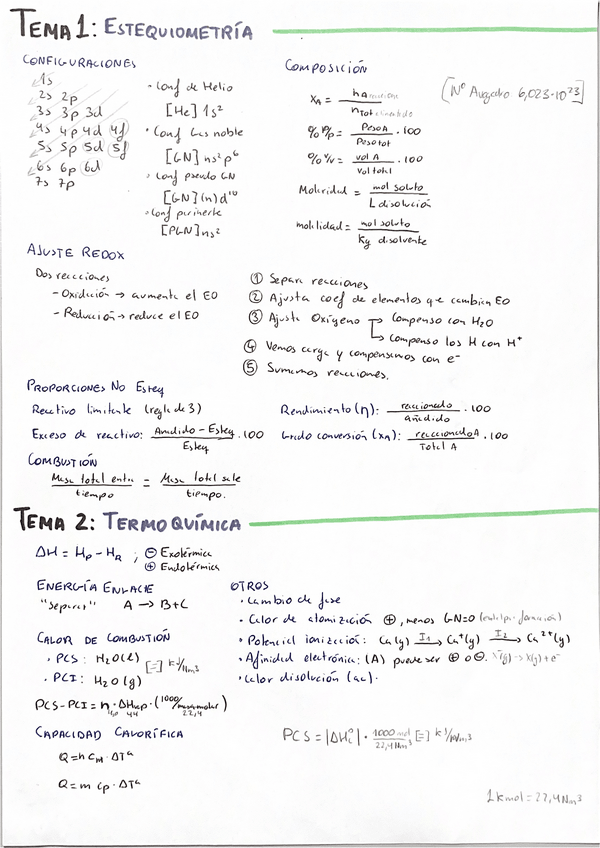 TEMA 1: ESTEQUIOMETRÍA
CONFIGURACIONES
1s
2s 2p
3s 3p 3d
4s 4p 4d 4f
5s 5p 5d 5f
6s 6p 6d
7s 7p
· Conf de Helio
[He] 1s²
· Conf Gas noble
[GN] ns²p⁶
· Conf pseudo GN
[GN](n)d¹⁰
· Conf par inerte
[PGN]ns²
COMPOSICIÓN
[Nº Avogadro 6,023·10²³]
xA = nA / nTot
% P/P = Peso A / Peso tot · 100
% V/V = vol A / vol total · 100
Molaridad = mol soluto / L disolución
molalidad = mol soluto / Kg disolvente
AJUSTE REDOX
Dos reacciones
- Oxidación → aumenta el EO
- Reducción → reduce el EO
① Separa reacciones
② Ajusta coef de elementos q e cambian EO
③ Ajusta Oxígeno → Compenso con H₂O
↳ Compenso los H con H⁺
④ Vemos carga y compensamos con e⁻
⑤ Sumamos reacciones.
PROPORCIONES NO ESTEQ
Reactivo limitante (regla de 3)
Exceso de reactivo: Añadido - Esteq / Esteq · 100
Rendimiento (η): reaccionado / añadido · 100
Grado conversión (xA): reaccionado A / Total A · 100
COMBUSTIÓN
Masa total entra / tiempo = Masa total sale / tiempo.
TEMA 2: TERMOQUÍMICA
ΔH = Hp - HR ; ⊖ Exotérmica
⊕ Endotérmica
ENERGÍA ENLACE
"Separar" A → B+C
CALOR DE COMBUSTIÓN
· PCS: H₂O(l) [=] kJ/Nm³
· PCI: H₂O(g)
PCS-PCI = n · ΔHvap · (1000/ / 22,4)
44
CAPACIDAD CALORÍFICA
Q = n cM · ΔTª
Q = m cp · ΔTª
OTROS
· Cambio de fase
· Calor de atomización ⊕, menos GN=0 (entalpía formación)
· Potencial ionización: Ca(g) I₁→ Ca⁺(g) I₂→ Ca²⁺(g)
· Afinidad electrónica: (A) puede ser ⊕ o ⊖. X⁻(g) → X(g) + e⁻
· Calor disolución (ac).
PCS = |ΔH°c| · 1000 mol / 22,4 Nm³ [=] kJ/Nm³
1 kmol = 22,4 Nm³